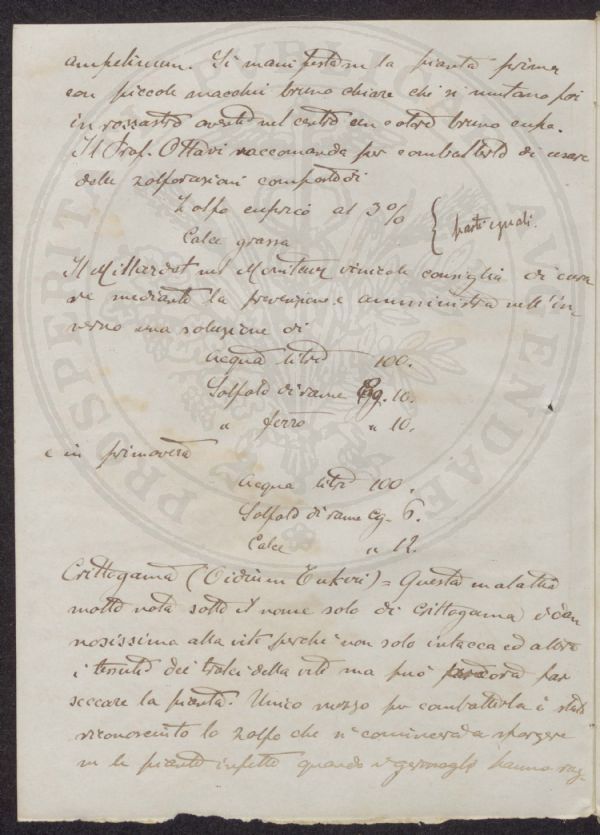 ampelinum. Si manifesta su la pianta prima
con piccole macchie bruno chiare che si mutano poi
in rossastro avente nel centro un colore bruno cupo.
Il Prof. Ottavi raccomanda per combatterlo di usare
delle zolforazioni composte di
Zolfo cuprico al 3% parti eguali.
Calce grassa
Il Millardet nel Moniteur vinicole consiglia di cura
re mediante la prevenzione e amministra nell'in-
verno una soluzione di
acqua litri 100.
Solfato di rame Cg. 10.
" ferro " 10.
e in primavera
acqua litri 100.
Solfato di rame Cg. 6.
Calce " 12.
Crittogama (Oidium Tukeri) = Questa malattia
molto nota sotto il nome solo di Crittogama è dan
nosissima alla vite perchè non solo intacca ed altera
i tessuti dei tralci della vite ma può far
seccare la pianta. Unico mezzo per combatterla è stato
riconosciuto lo zolfo che si comincerà a spargere
su le piante infette quando i germogli hanno rag-
PROSPERITATI PUBLICAE AUGENDAE